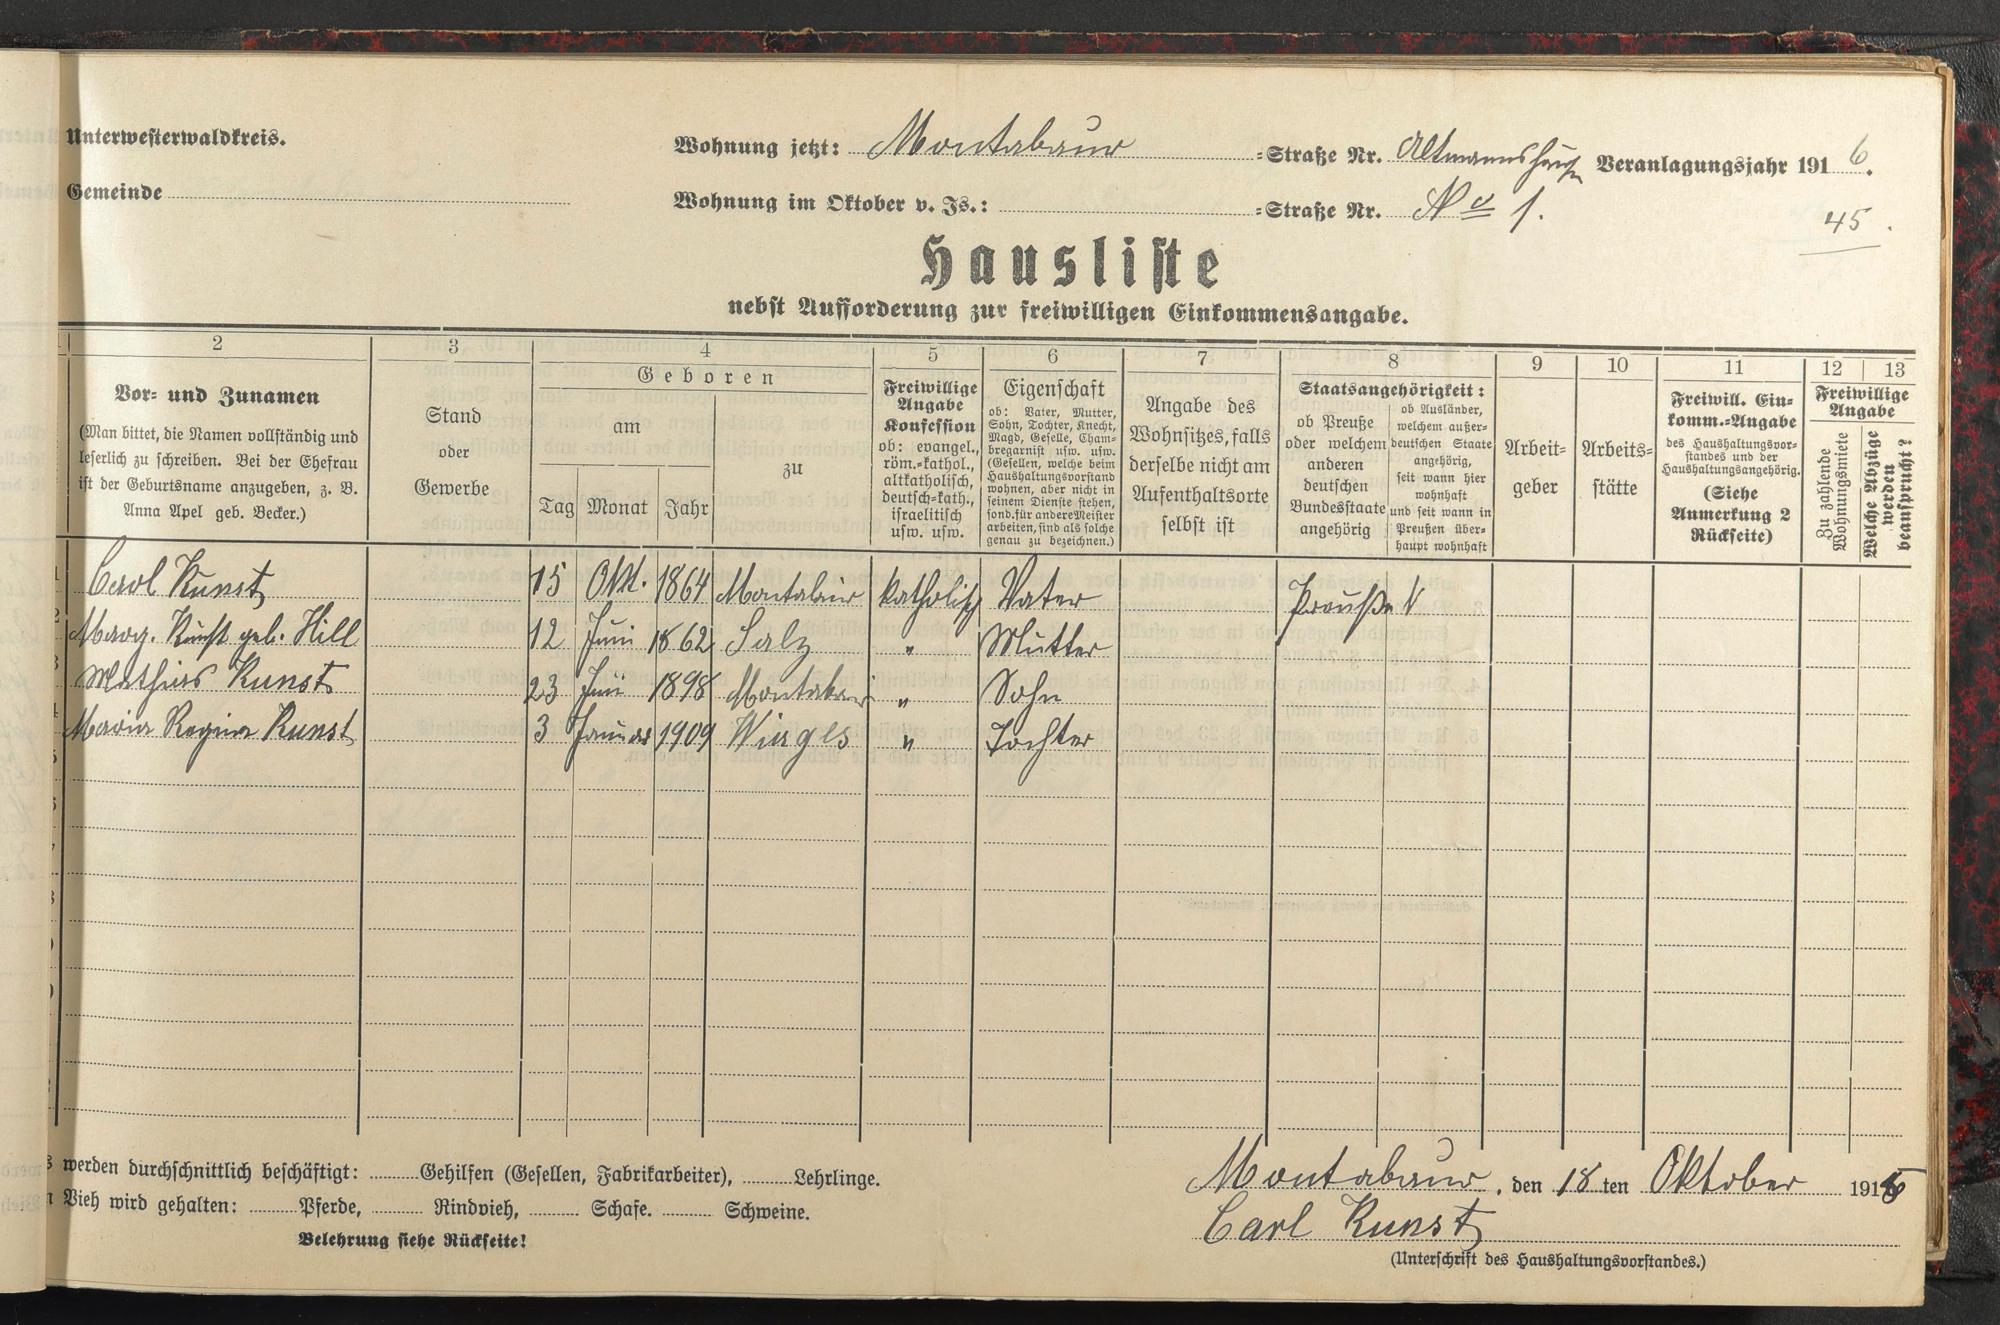 Unterwesterwaldkreis.
Wohnung jetzt: Montabaur =Straße Nr. Veranlagungsjahr 1916.
Gemeinde
Wohnung im Oktober v. Js.: =Straße Nr. No 1.
45.
Hausliste
nebst Aufforderung zur freiwilligen Einkommensangabe.
2 3 4 5 6 7 8 9 10 11 12 13
Vor= und Zunamen
(Man bittet, die Namen vollständig und
leserlich zu schreiben. Bei der Ehefrau
ist der Geburtsname anzugeben, z. B.
Anna Apel geb. Becker.)
Stand
oder
Gewerbe
Geboren
am
zu
Tag Monat Jahr
Freiwillige
Angabe
Konfession
ob: evangel.,
röm.=kathol.,
altkatholisch,
deutsch=kath.,
israelitisch
usw. usw.
Eigenschaft
ob: Vater, Mutter,
Sohn, Tochter, Knecht,
Magd, Geselle, Cham=
bregarnist usw. usw.
(Gesellen, welche beim
Haushaltungsvorstand
wohnen, aber nicht in
seinem Dienste stehen,
sond. für andere Meister
arbeiten, sind als solche
genau zu bezeichnen.)
Angabe des
Wohnsitzes, falls
derselbe nicht am
Aufenthaltsorte
selbst ist
Staatsangehörigkeit:
ob Preuße
oder welchem
anderen
deutschen
Bundesstaate
angehörig
ob Ausländer,
welchem außer=
deutschen Staate
angehörig,
seit wann hier
wohnhaft
und seit wann in
Preußen über=
haupt wohnhaft
Arbeit=
geber
Arbeits=
stätte
Freiwill. Ein=
komm.=Angabe
des Haushaltungsvor=
standes und der
Haushaltungsangehörig.
(Siehe
Anmerkung 2
Rückseite)
Freiwillige
Angabe
Zu zahlende
Wohnungsmiete
Welche Abzüge
werden
beansprucht?
1 Carl Kunst 15 Okt. 1864 Montabaur katholisch Vater Preuße
2 Marg. Kunst geb. Hill 12 Juni 1862 Salz " Mutter
3 Mathias Kunst 23 Juni 1898 Montabaur " Sohn
4 Maria Regina Kunst 3 Januar 1909 Wirges " Tochter
5
6
7
8
werden durchschnittlich beschäftigt: Gehilfen (Gesellen, Fabrikarbeiter), Lehrlinge.
Vieh wird gehalten: Pferde, Rindvieh, Schafe. Schweine.
Belehrung siehe Rückseite!
Montabaur, den 18 ten Oktober 191
Carl Kunst
(Unterschrift des Haushaltungsvorstandes.)